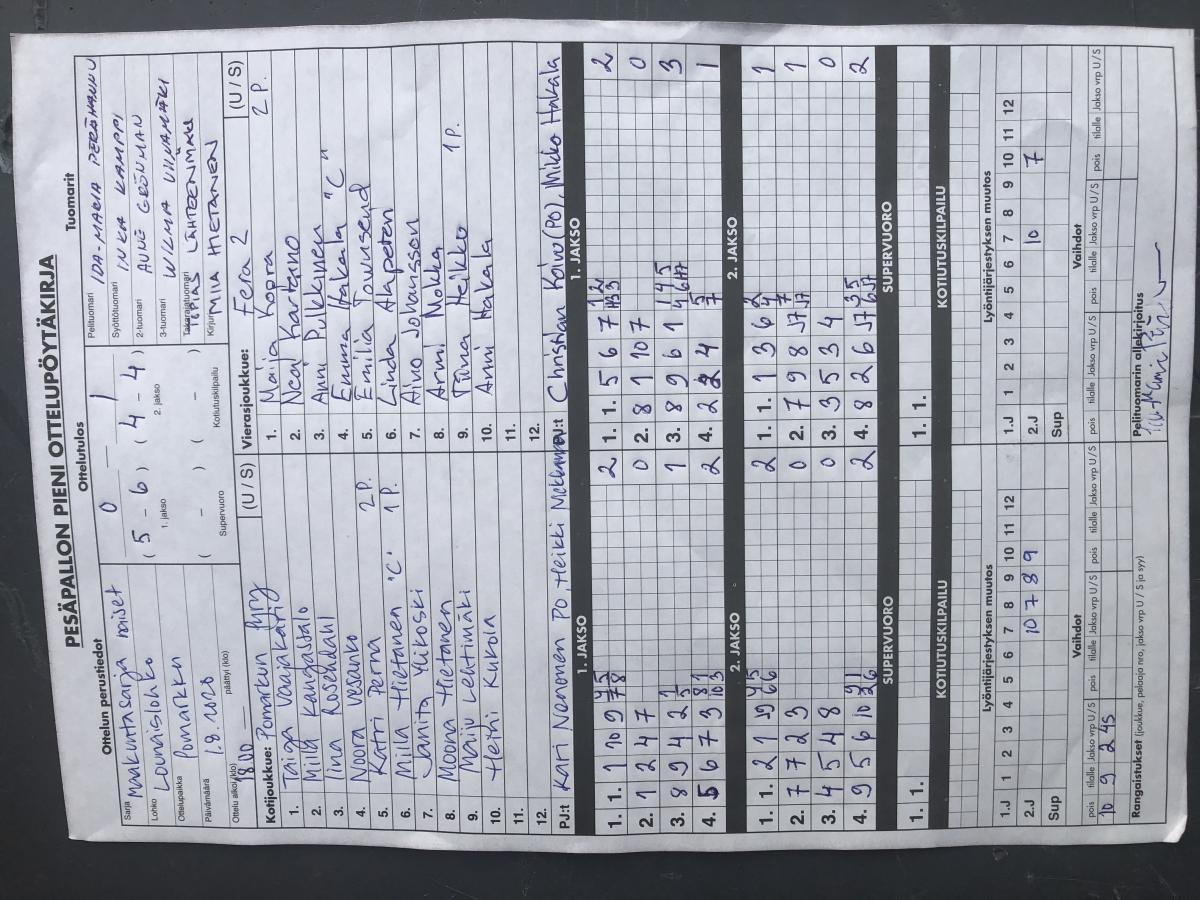 PESÄPALLON PIENI OTTELUPÖYTÄKIRJA
Ottelun perustiedot
Sarja Maakuntasarja naiset
Lohko Lounaislohko
Ottelupaikka Pomarkku
Päivämäärä 1.8.2020
Ottelu alkoi (klo) 18.00 päättyi (klo)
Ottelutulos
0 – 1
( 5 – 6 ) ( 4 – 4 )
1. jakso 2. jakso
( – ) ( – )
Supervuoro Kotiutuskilpailu
Tuomarit
Pelituomari IDA-MARIA PERÄHANNU
Syöttötuomari INKA KAMPPI
2-tuomari AUNE GRÖNMAN
3-tuomari WILMA VILHAMÄKI
Takarajatuomari PIAS LÄHTEENMÄKI
Kirjuri MIIA HIETANEN
Kotijoukkue: Pomarkun Pyry (U / S)
1. Taiga Vanjakari
2. Milla Kangassalo
3. Iina Rosendahl
4. Noora Vesanko 2 P.
5. Katri Perna 1 P.
6. Milla Hietanen "C"
7. Janita Yukoski
8. Moona Hietanen
9. Maiju Lehtimäki
10. Heini Kukola
11.
12.
PJ:t Kari Nenonen PO, Heikki
Vierasjoukkue: Fera 2 (U / S)
1. Maija Kopra 2 P.
2. Nea Kartano
3. Anni Pulkkinen
4. Emma Hakala "C"
5. Emilia Townsend
6. Linda Alapeteri
7. Aino Johansson
8. Armi Nokka
9. Tiina Heikko 1 P.
10. Anni Hakala
11.
12.
PJ:t Christian Koivu (PO), Mikko Hakala
1. JAKSO
1. 1. 1 10 9 2
2. 1 2 4 7 0
3. 8 9 4 2 1
4. 5 6 7 3 2
2. JAKSO
1. 1. 2 1 2
2. 7 7 2 3 0
3. 4 5 4 8 0
4. 9 5 6 10 2
SUPERVUORO
1. 1.
KOTIUTUSKILPAILU
1. JAKSO
1. 1. 5 6 7 2
2. 8 1 10 7 0
3. 8 9 6 1 3
4. 2 2 4 1
2. JAKSO
1. 1. 1 3 6 1
2. 7 9 8 J7 1
3. 3 5 3 4 0
4. 8 2 6 J7 2
SUPERVUORO
1. 1.
KOTIUTUSKILPAILU
Lyöntijärjestyksen muutos
1.J 1 2 3 4 5 6 7 8 9 10 11 12
2.J 10 7 8 9
Sup
Lyöntijärjestyksen muutos
1.J 1 2 3 4 5 6 7 8 9 10 11 12
2.J 10 7
Sup
Vaihdot
pois tilalle Jakso vrp U/S pois tilalle Jakso vrp U/S pois tilalle Jakso vrp U/S
10 9 2 4S
Vaihdot
pois tilalle Jakso vrp U/S pois tilalle Jakso vrp U/S pois tilalle Jakso vrp U/S
Rangaistukset (joukkue, pelaaja nro, jakso vrp U / S ja syy)
Pelituomarin allekirjoitus